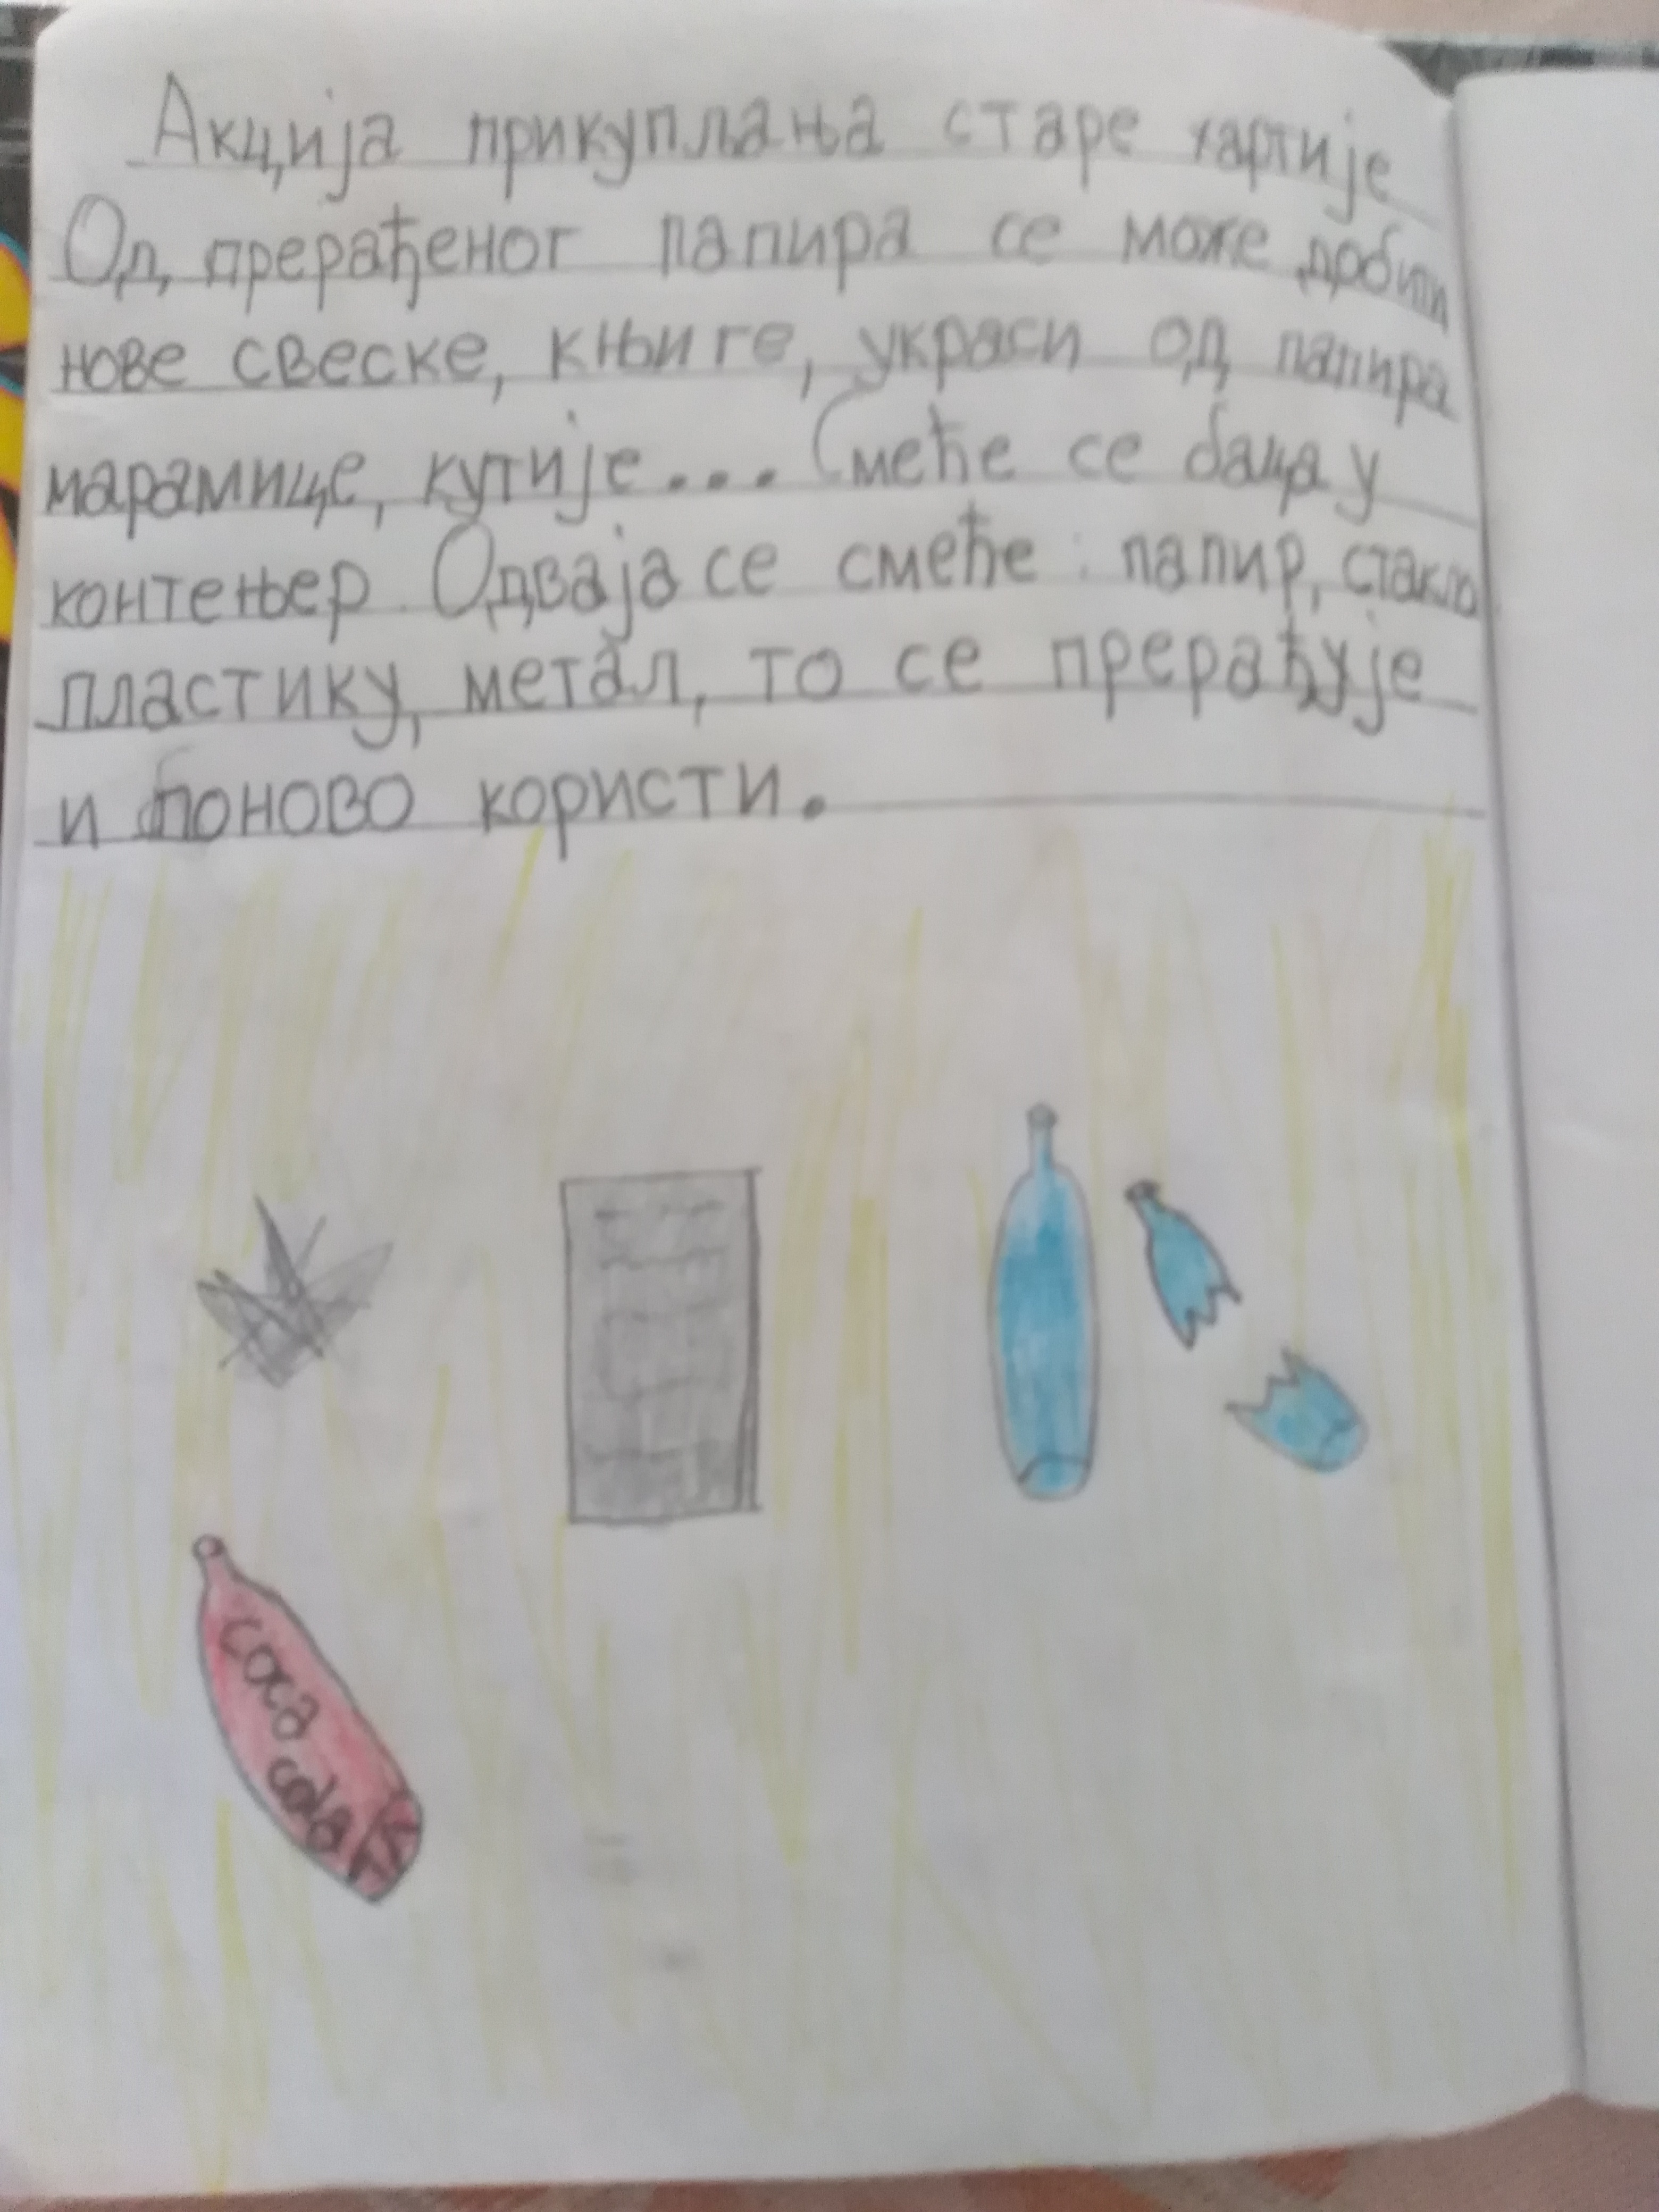 Акција прикуплања старе хартије
Од прерађеног папира се може добити
нове свеске, књиге, украси од папира
марамице, кутије... Смеће се баца у
контењер. Одваја се смеће: папир, стакло
пластику, метал, то се прерађује
и поново користи.
coca
cola